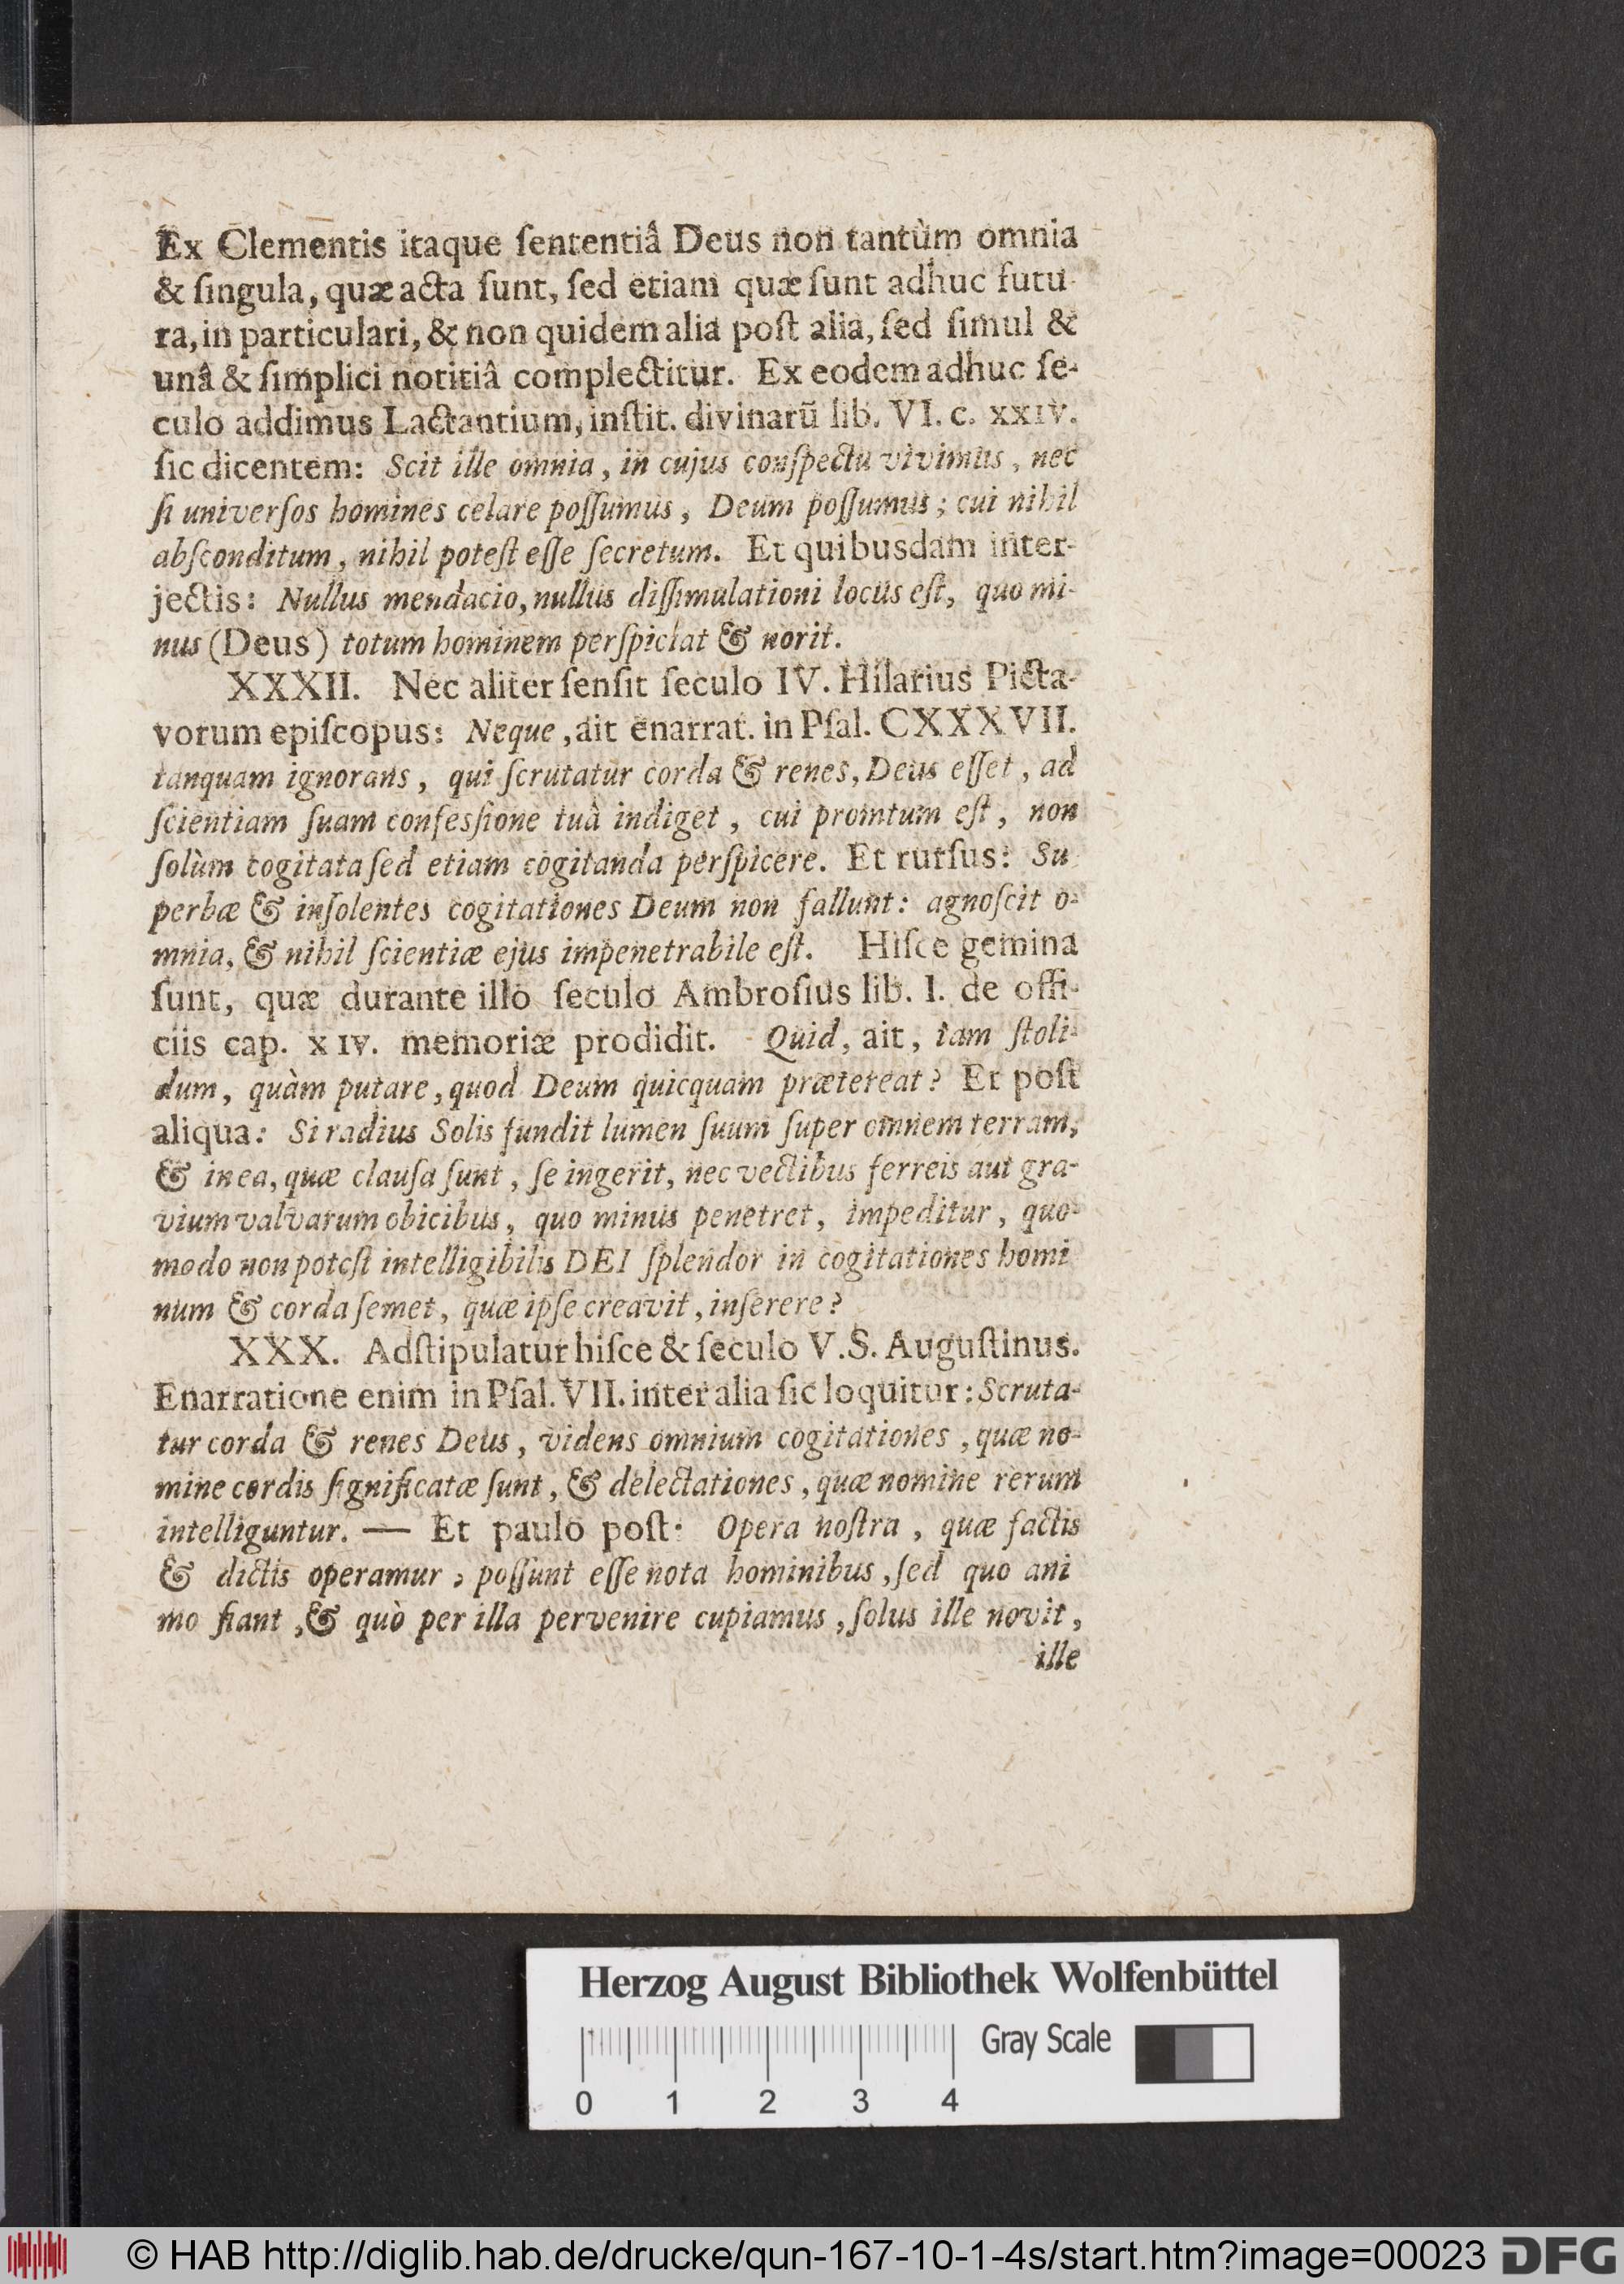 Ex Clementis itaque ſententiâ Deus non tantùm omnia
& ſingula, quæ acta ſunt, ſed etiam quæ ſunt adhuc futu-
ra, in particulari, & non quidem alia poſt alia, ſed ſimul &
unâ & ſimplici notitiâ complectitur. Ex eodem adhuc ſe-
culo addimus Lactantium, inſtit. divinarũ lib. VI. c. XXIV.
ſic dicentem: Scit ille omnia, in cujus conſpectu vivimus, nec
ſi univerſos homines celare poſſumus, Deum poſſumus; cui nihil
abſconditum, nihil poteſt eſſe ſecretum. Et quibusdam inter-
jectis: Nullus mendacio, nullus diſſimulationi locus eſt, quo mi-
nus (Deus) totum hominem perſpiciat & norit.
XXXII. Nec aliter ſenſit ſeculo IV. Hilarius Picta-
vorum epiſcopus: Neque, ait enarrat. in Pſal. CXXXVII.
tanquam ignorans, qui ſcrutatur corda & renes, Deus eſſet, ad
ſcientiam ſuam confesſione tuâ indiget, cui promtum eſt, non
ſolùm cogitata ſed etiam cogitanda perſpicere. Et rurſus: Su
perbæ & inſolentes cogitationes Deum non fallunt: agnoſcit o-
mnia, & nihil ſcientiæ ejus impenetrabile eſt. Hiſce gemina
ſunt, quæ durante illo ſeculo Ambroſius lib. I. de offi-
ciis cap. XIV. memoriæ prodidit. Quid, ait, tam ſtoli-
dum, quàm putare, quod Deum quicquam prætereat? Et poſt
aliqua: Si radius Solis fundit lumen ſuum ſuper omnem terram,
& in ea, quæ clauſa ſunt, ſe ingerit, nec vectibus ferreis aut gra-
vium valvarum obicibus, quo minus penetret, impeditur, quo-
modo non poteſt intelligibilis DEI ſplendor in cogitationes homi
num & corda ſemet, quæ ipſe creavit, inſerere?
XXX. Adſtipulatur hiſce & ſeculo V. S. Auguſtinus.
Enarratione enim in Pſal. VII. inter alia ſic loquitur: Scruta-
tur corda & renes Deus, videns omnium cogitationes, quæ no-
mine cordis ſignificatæ ſunt, & delectationes, quæ nomine rerum
intelliguntur. — Et paulo poſt: Opera noſtra, quæ factis
& dictis operamur, poſſunt eſſe nota hominibus, ſed quo ani
mo fiant, & quò per illa pervenire cupiamus, ſolus ille novit,
ille
Herzog August Bibliothek Wolfenbüttel
Gray Scale
0 1 2 3 4
© HAB http://diglib.hab.de/drucke/qun-167-10-1-4s/start.htm?image=00023 DFG